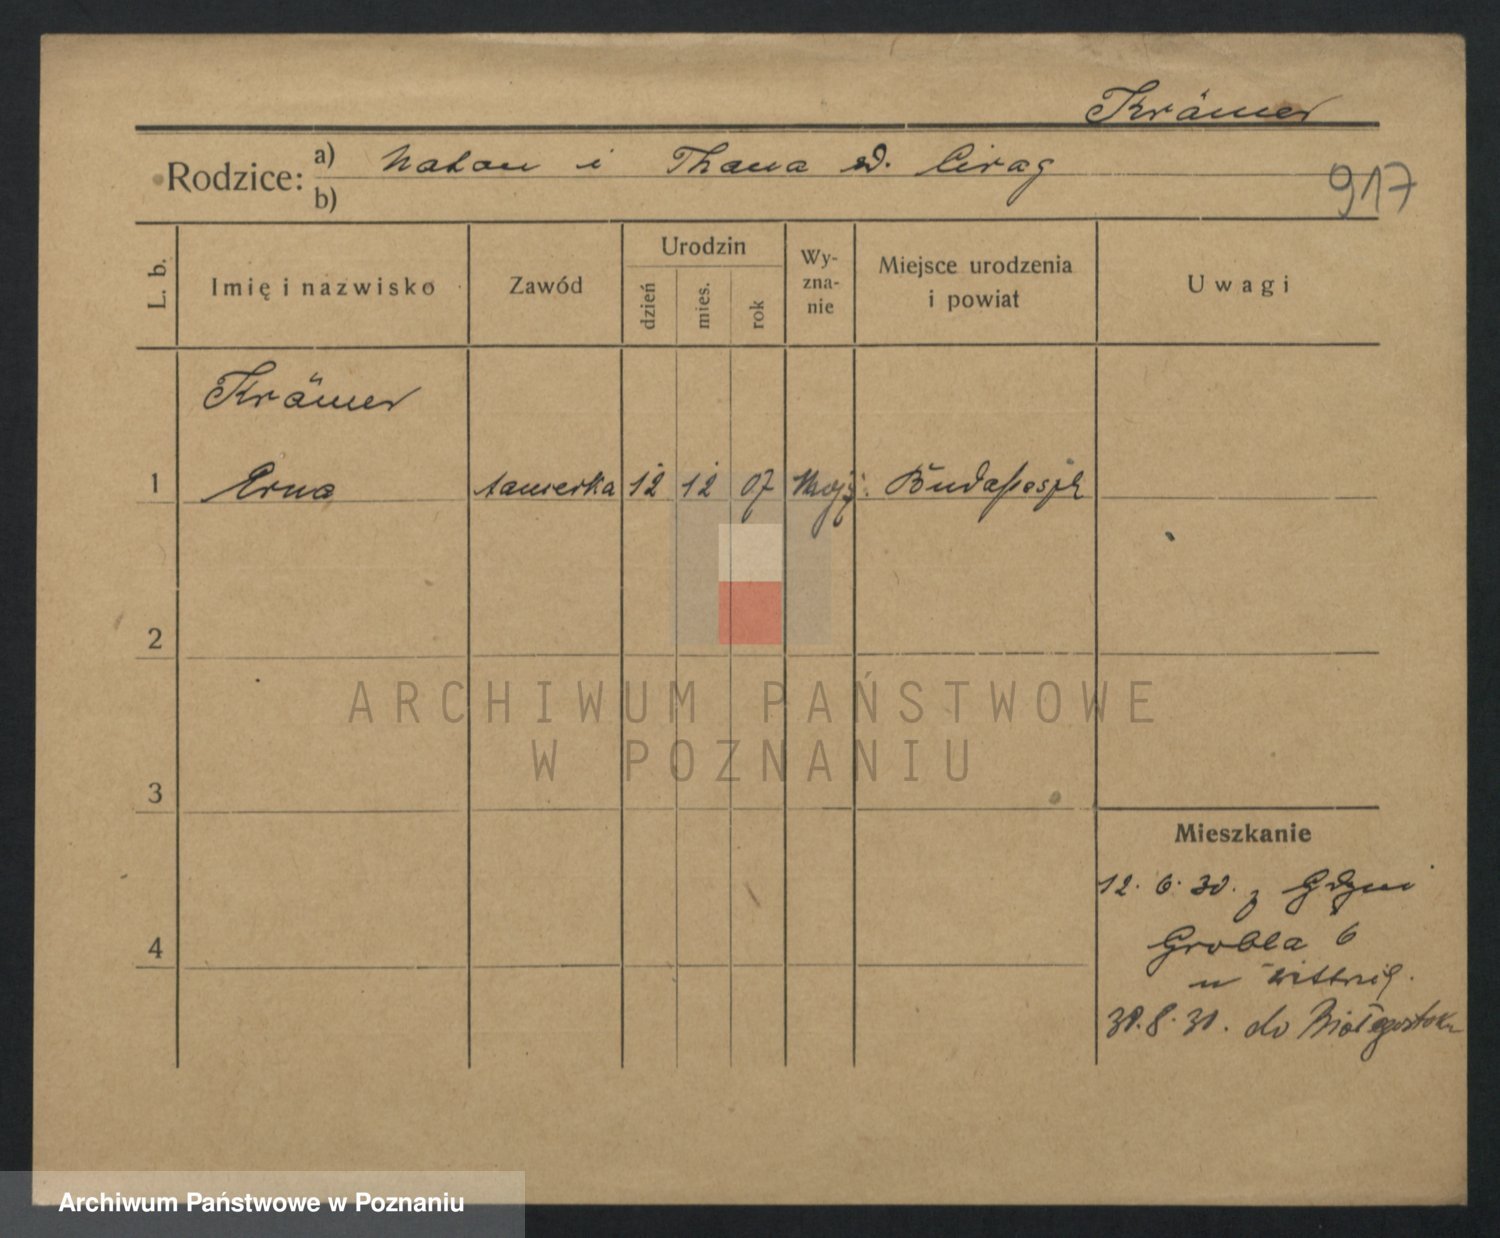 Krämer
Rodzice: a) Natan i Thana zd. Cirag
b)
917
L. b.
Imię i nazwisko
Zawód
Urodzin
dzień
mies.
rok
Wy-
zna-
nie
Miejsce urodzenia
i powiat
Uwagi
Krämer
1 Erna tancerka 12 12 07 mojż. Budapeszt
2
3
4
Mieszkanie
12. 6. 30. z Gdyni
Grobla 6
u
30. 8. 30. do Białegostoku
ARCHIWUM PAŃSTWOWE
W POZNANIU
Archiwum Państwowe w Poznaniu